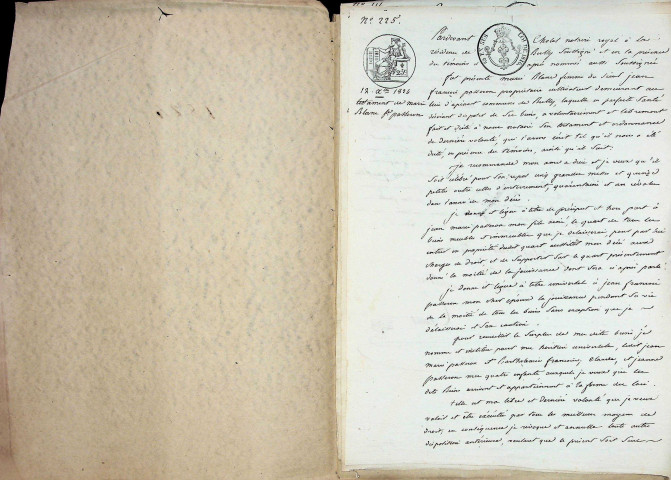 N.º 225.
12 Xbre 1824
testament de marie
Blanc fe passeron
Pardevant Cholet notaire royal à la
résidence de Bully soussigné et en la présence
des témoins ci après nommés aussi soussignés
fut présente marie Blanc femme du sieur jean
françois passeron propriétaire cultivateur demeurant au
lieu d'apinost commune de Bully, laquelle en parfaite santé
désirant disposer de ses biens, a volontairement et librement
fait et dicté à nous notaire son testament et ordonnance
de dernière volonté, que l'avons écrit tel qu'il nous a été
dicté, en présence des témoins, ainsi qu'il suit:
je recommande mon ame a dieu et je veux qu'il
soit célébré pour son repos cinq grandes messes et quinze
petites outre celles d'enterrement, quarantaine et au révolu
dans l'année de mon décès.
je donne et lègue à titre de préciput et hors part à
jean marie passeron mon fils aîné, le quart de tous les
biens meubles et immeubles que je délaisserai pour par lui
entrer en propriété dudit quart aussitôt mon décès aux
charges de droit, et de supporter sur le quart présentement
donné la moitié de la jouissance dont sera ci après parlé
je donne et lègue à titre universel à jean françois
passeron mon cher époux la jouissance pendant sa vie
de la moitié de tous les biens sans exception que je
délaisserai et sans caution.
pour recueillir le surplus de mes dits biens je
nomme et institue pour mes héritiers universels, ledit jean
marie passeron et Barthélemie françoise, Claudine, et jeanne
passeron mes quatre enfants auxquels je veux que les
dits biens arrivent et appartiennent à la forme des lois.
telle est ma libre et dernière volonté que je veux
valoir et être exécutée par tous les meilleurs moyens de
droit, en conséquence je révoque et annulle toute autre
disposition antérieure, voulant que la présente soit seule